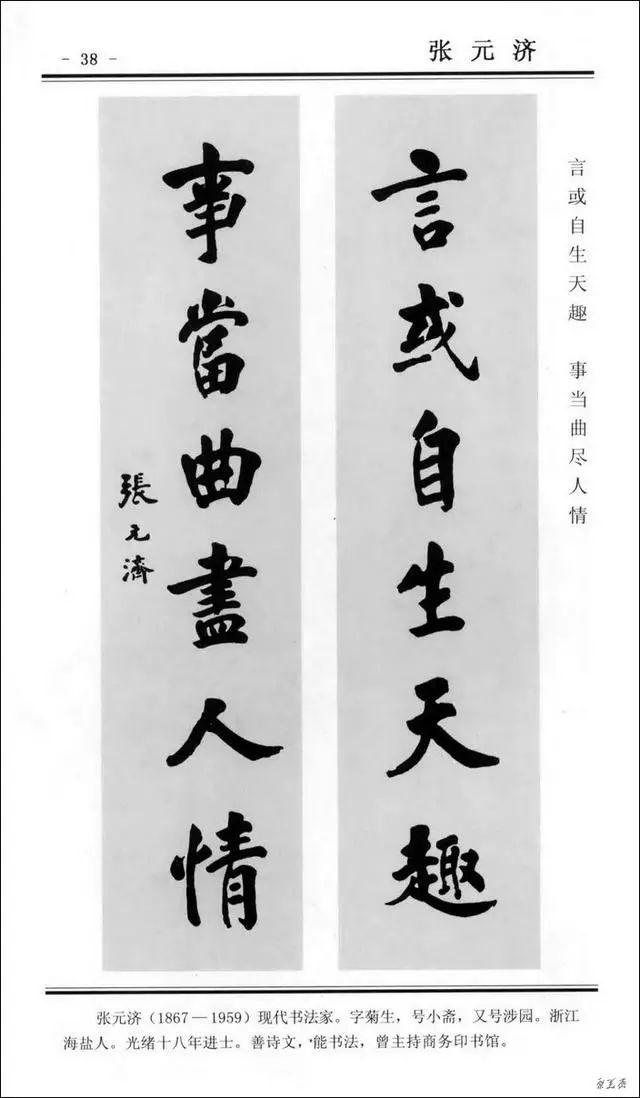 - 38 -
张元济
言或自生天趣
事當曲盡人情
張元濟
言或自生天趣 事当曲尽人情
张元济（1867—1959）现代书法家。字菊生，号小斋，又号涉园。浙江
海盐人。光绪十八年进士。善诗文，能书法，曾主持商务印书馆。